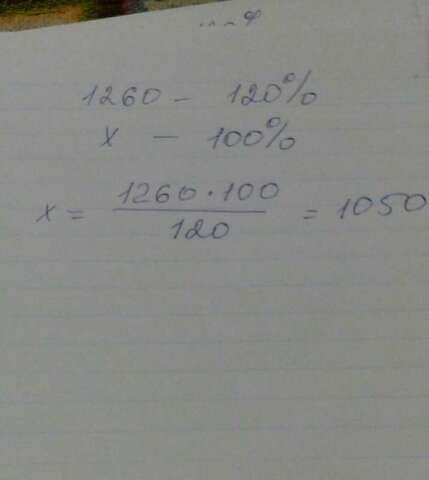 1260 – 120%
x – 100%
x = 1260 · 100 / 120 = 1050